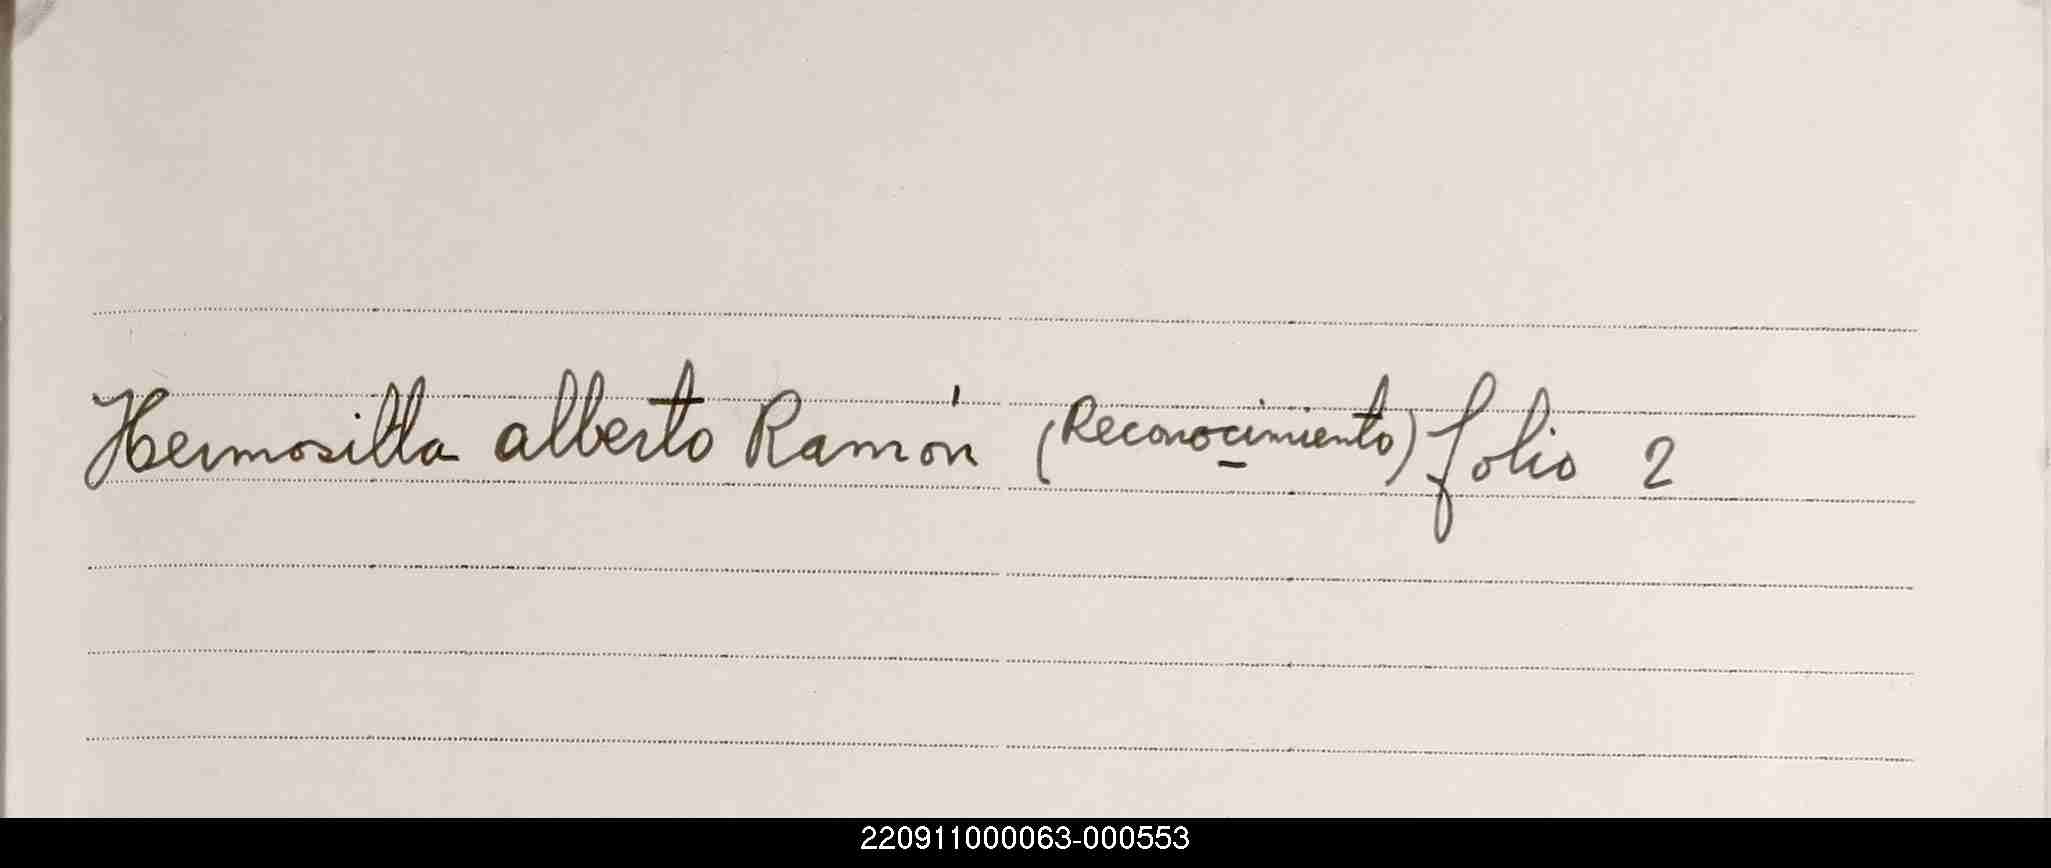 Hermosilla alberto Ramón (Reconocimiento) folio 2
220911000063-000553